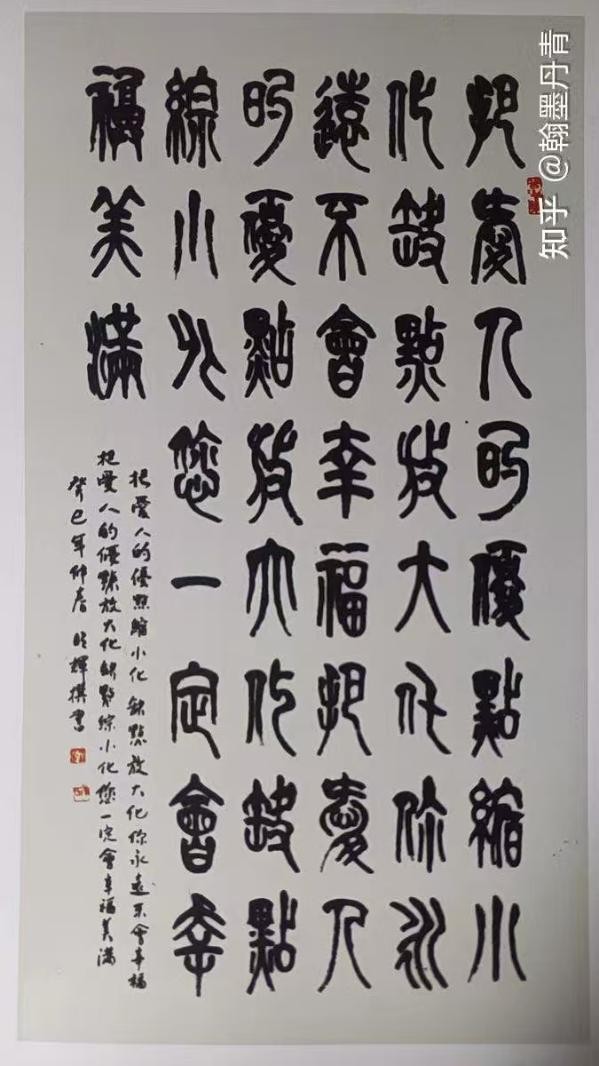 把愛人的優點縮小
化缺點放大化你永
遠不會幸福把愛人
的優點放大化缺點
綜小化您一定會幸
福美滿
把愛人的優點縮小化 缺點放大化你永遠不會幸福
把愛人的優點放大化缺點綜小化您一定會幸福美滿
癸巳年仲春 輝撰書
知乎 @翰墨丹青